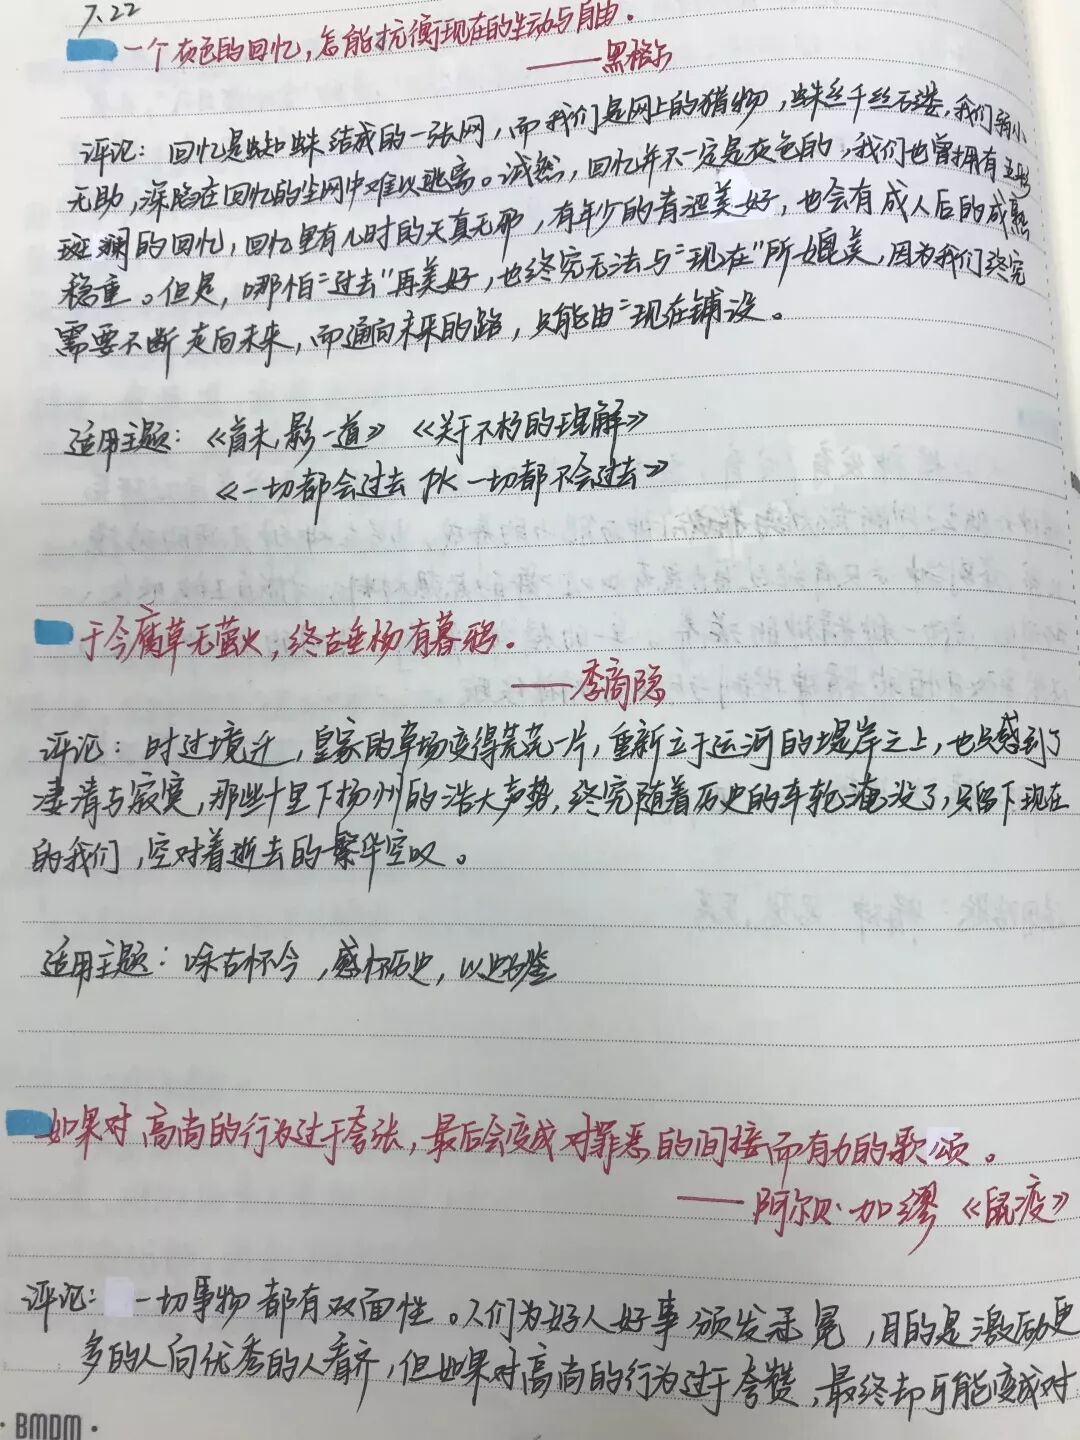 7.22
一个灰色的回忆，怎能抗衡现在的生动与自由．
——黑格尔
评论：回忆是蜘蛛结成的一张网，而我们是网上的猎物，蛛丝千丝万缕，我们弱小
无助，深陷在回忆的尘网中难以逃离。诚然，回忆并不一定是灰色的，我们也曾拥有五彩
斑斓的回忆，回忆里有儿时的天真无邪，有年少的青涩美好，也会有成人后的成熟
稳重。但是，哪怕"过去"再美好，也终究无法与"现在"所媲美，因为我们终究
需要不断走向未来，而通向未来的路，只能由"现在铺设。
适用主题：《首未，影一道》 《关于不朽的理解》
《一切都会过去 PK 一切都不会过去》
于今腐草无萤火，终古垂杨有暮鸦。
——李商隐
评论：时过境迁，皇家的草场变得荒芜一片，重新立于运河的堤岸之上，也只感到了
凄清与寂寞，那些十里下扬州的浩大声势，终究随着历史的车轮淹没了，只留下现在
的我们，空对着逝去的繁华空叹。
适用主题：咏古怀今，感怀历史，以史为鉴
如果对高尚的行为过于夸张，最后会变成对罪恶的间接而有力的歌颂。
——阿尔贝·加缪《鼠疫》
评论：一切事物都有双面性。人们为好人好事颁发冠冕，目的是激励更
多的人向优秀的人看齐，但如果对高尚的行为过于夸赞，最终却可能变成对
BMDM